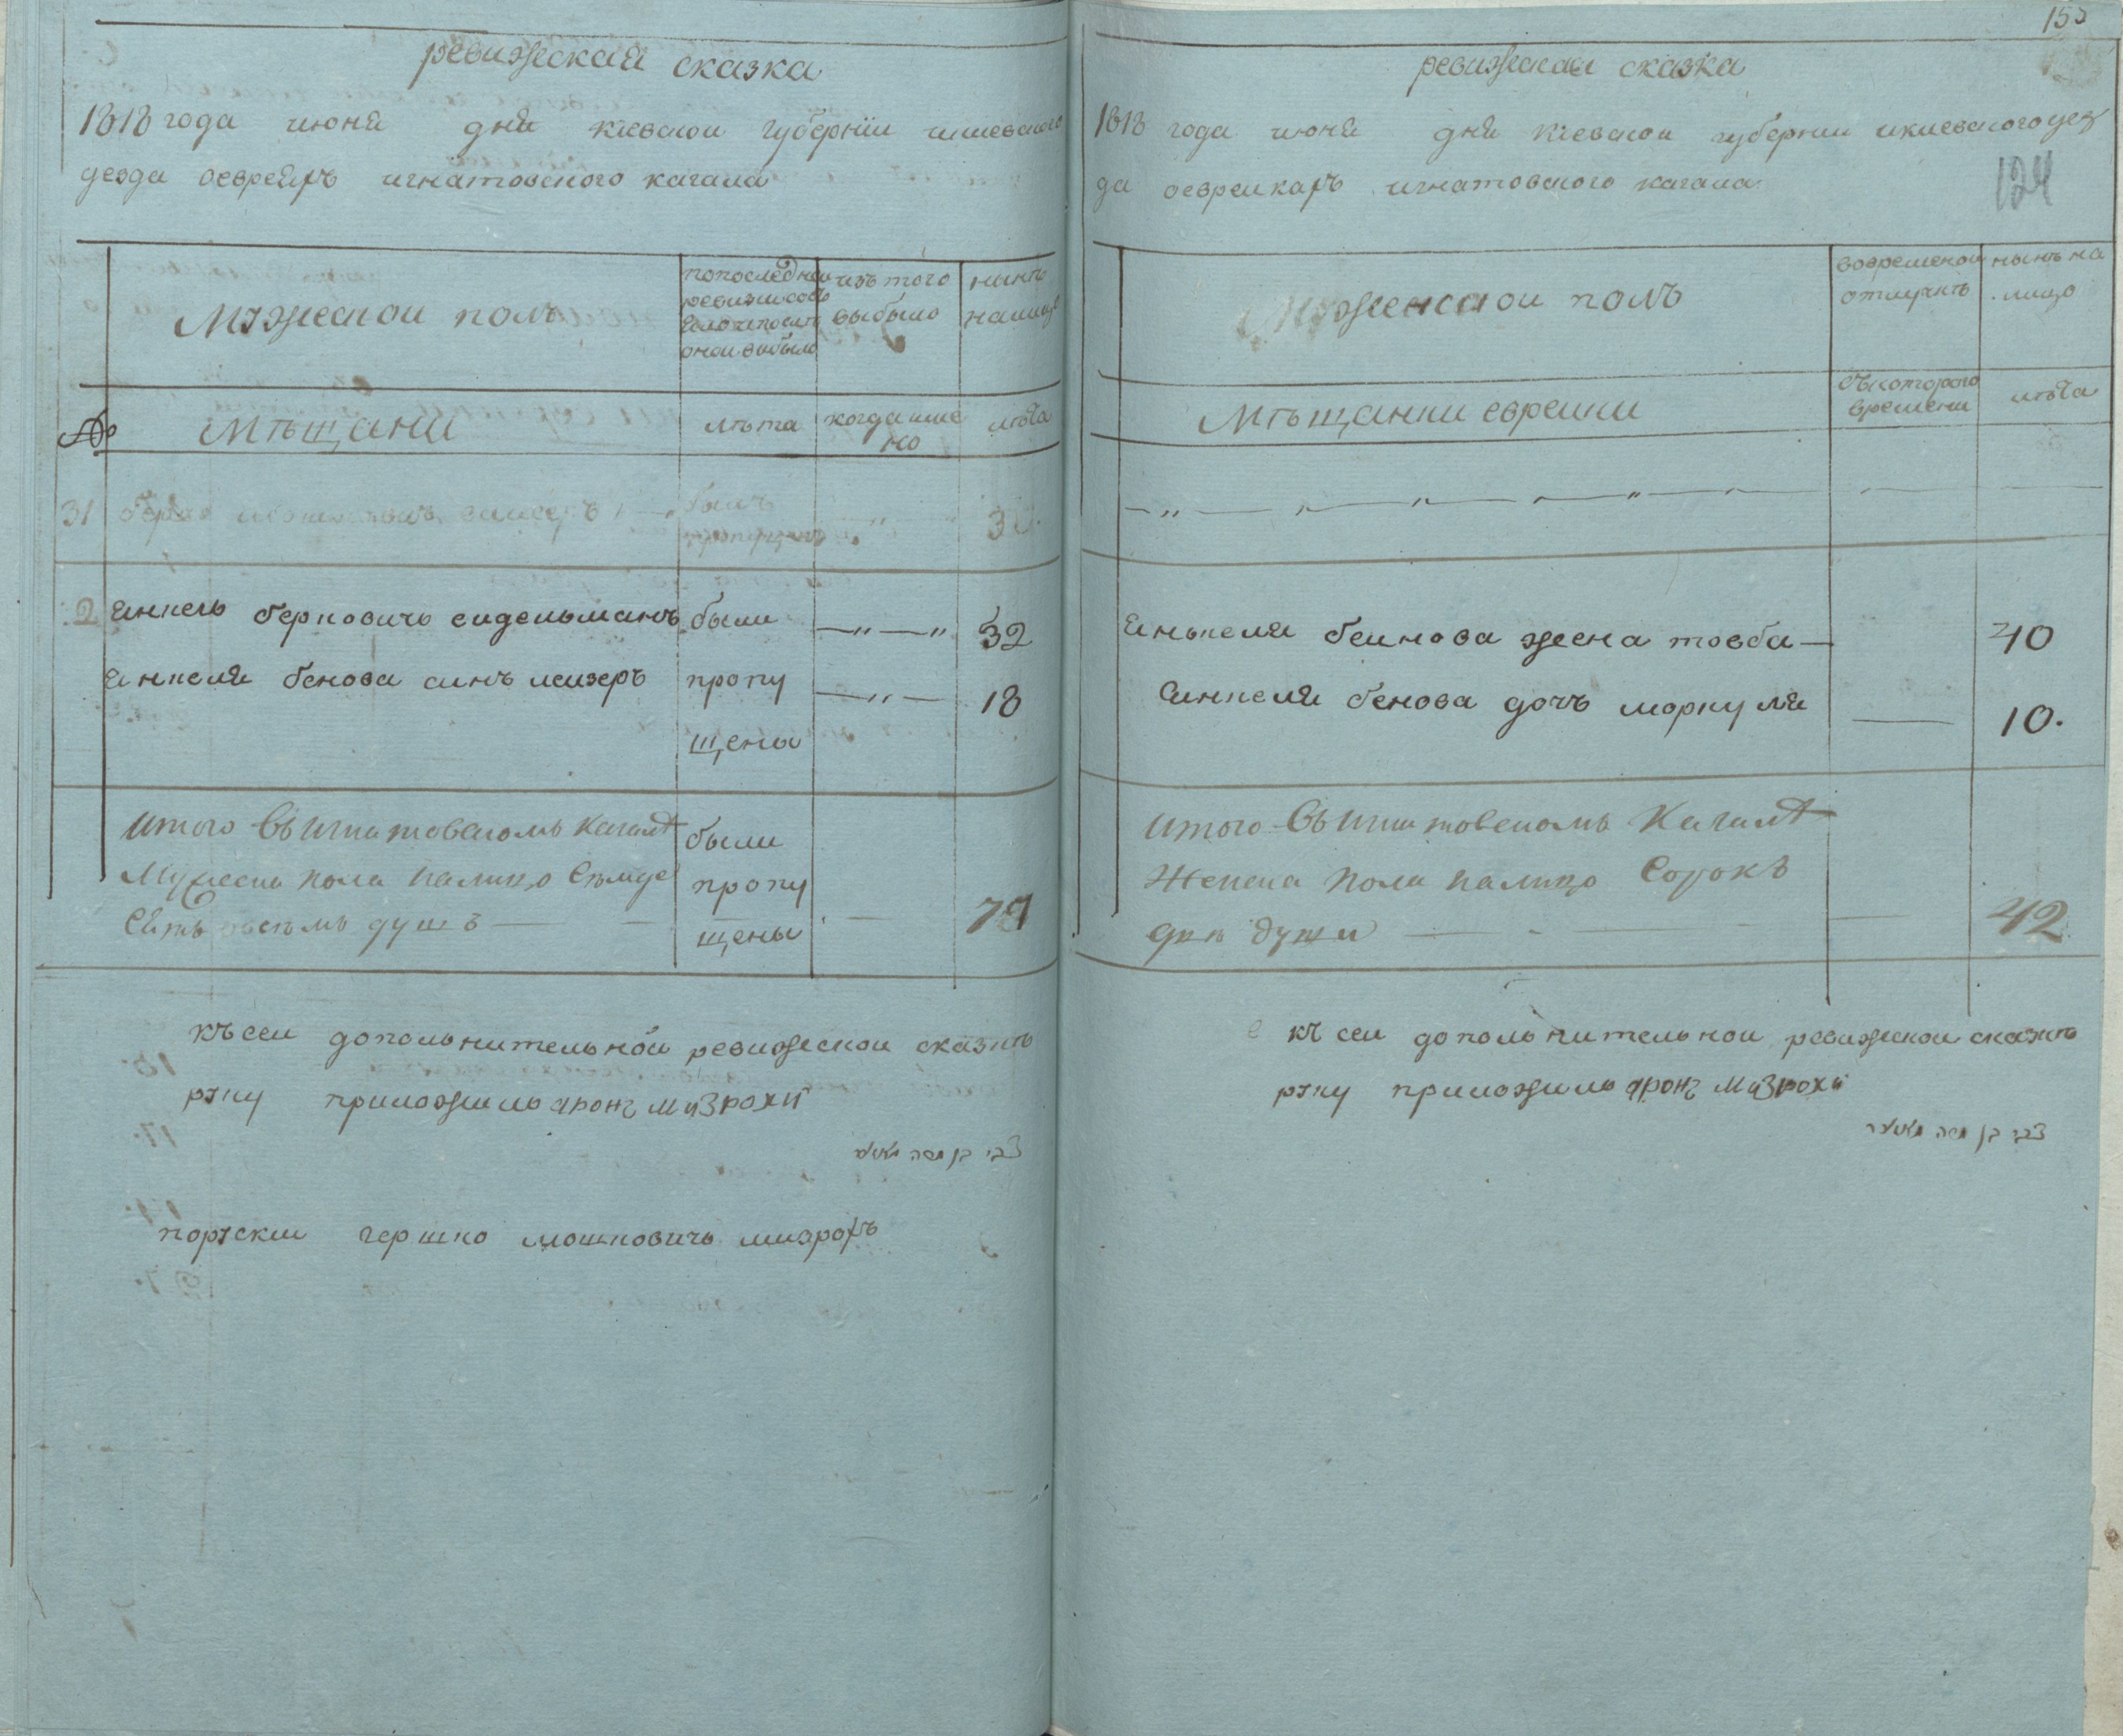 ревижская сказка
1818 года июня дня киевской губернїи икиевского
уезда оевреяхъ игнатовского кагала
Мужеской полъ
попоследней
ревизии состояло и после
оной выбыло
изъ того
выбыло
нынѣ
налицо
№ Мѣщани
лѣта
когда имено
лѣта
31
былъ
пропущенъ
2 Янкель берковичь сидельманъ были —"—" 32
Янкеля бенова синъ лейзеръ пропу —"— 18
щены
Итого въ Игнатовскомъ Кагалѣ были
Мужеска пола налицо Семдесятъ пропу
восемь душъ — щены
къ сей дополнительной ревижской сказкѣ
руку приложилъ аронъ Мизрохй
צבי בן משה
порускии гершко мошковичъ мизрохъ
155
ревижская сказка
1818 года июня дня киевской губернии икиевского уез
да оеврейкахъ игнатовского кагала
124
Женской полъ
вовременой
отлучкѣ
нынѣ на
лицо
Мѣщанки еврейки
съкоторого
времени
лѣта
Янькеля бейнова жена товба — 40
Янкеля бенова дочъ моркуля — 10.
Итого въ Игнатовскомъ Кагалѣ
Женска пола налицо Сорокъ
двѣ души — 42
къ сей дополнительной ревижской сказкѣ
руку приложилъ аронъ Мизрохй
צבי בן משה